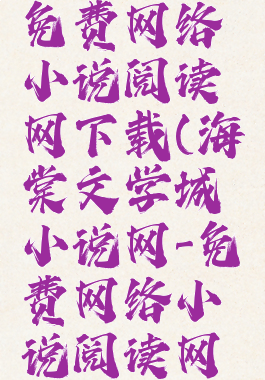 免费网络
小说阅读
网下载(海
棠文学城
小说网-免
费网络小
说阅读网